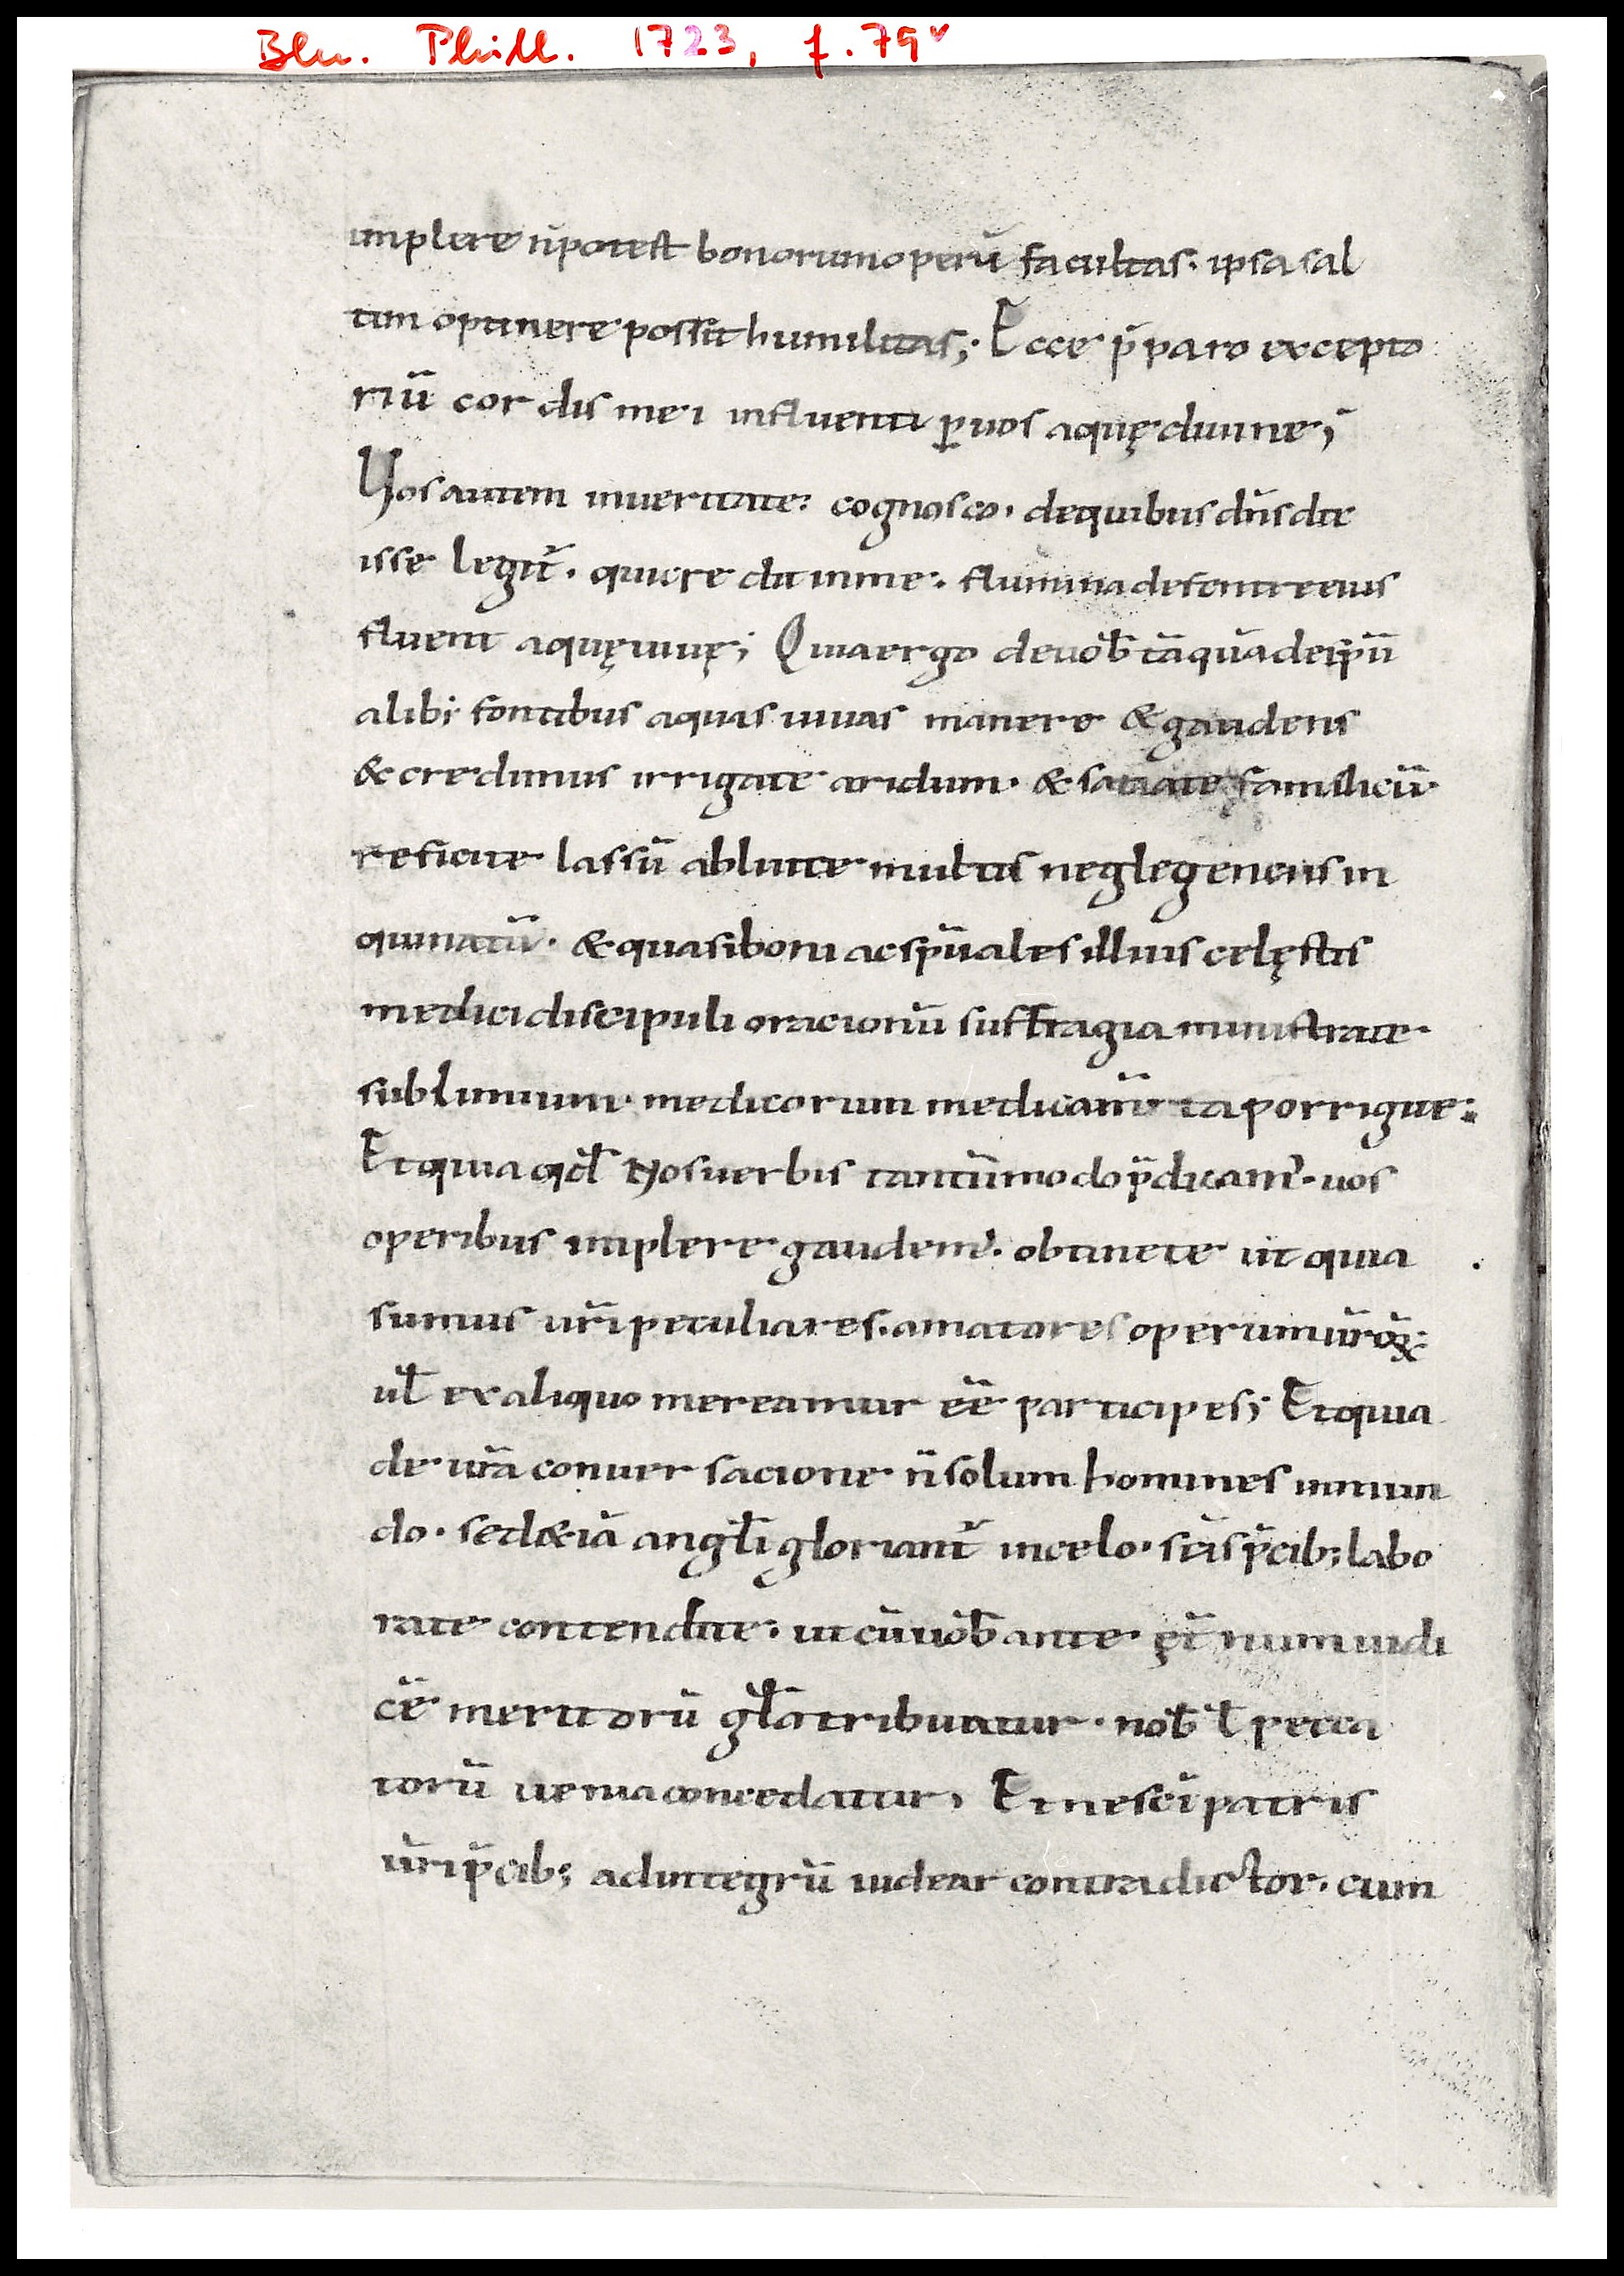 Bln. Phill. 1723, f. 79v
implere n̄ potest bonorum operū facultas. ipsa sal
tim optinere possit humilitas;. Ecce p̄paro excepto
riū cordis mei influenti ꝑ vos aquę divine;
Vos autem in veritate: cognosco. de quibus dn̄s dix
isse legit᷑. qui credit in me. flumina de fonte eius
fluent aquę vivę; Quia ergo de vob̄ tāquā de sp̄ū
alib; fontibus aquas vivas manere & gaudens
& credimus irrigate aridum. & satiate famelicū.
reficite lassū abluite multis neglegenciis in
quinatū. & quasi boni ac sp̄uales illius celęstis
medici discipuli oracionū suffragia ministrate.
sublimium. medicorum medicam̄ta porrigite:
Et quia qd̄ nos verbis tantūmodo p̄dicam᷑. vos
operibus implere gaudem᷑. obtinete ut quia
sumus vr̄i peculiares. amatores operum vr̄oꝝ.
vl̄ ex aliquo mereamur eē participes; Et quia
de vr̄a conversacione n̄ solum homines in mun
do. sed &iā angl̄i gloriant᷑ in celo. sc̄is p̄cib; labo
rate contendite. ut cū vob̄ ante ęt᷑num iudi
cē meritorū gl̄a tribuatur. nob̄ l̄ pecca
torū venia concedatur, Et ne sc̄i patris
vr̄i p̄cib; ad integrū videar contradictor. cum